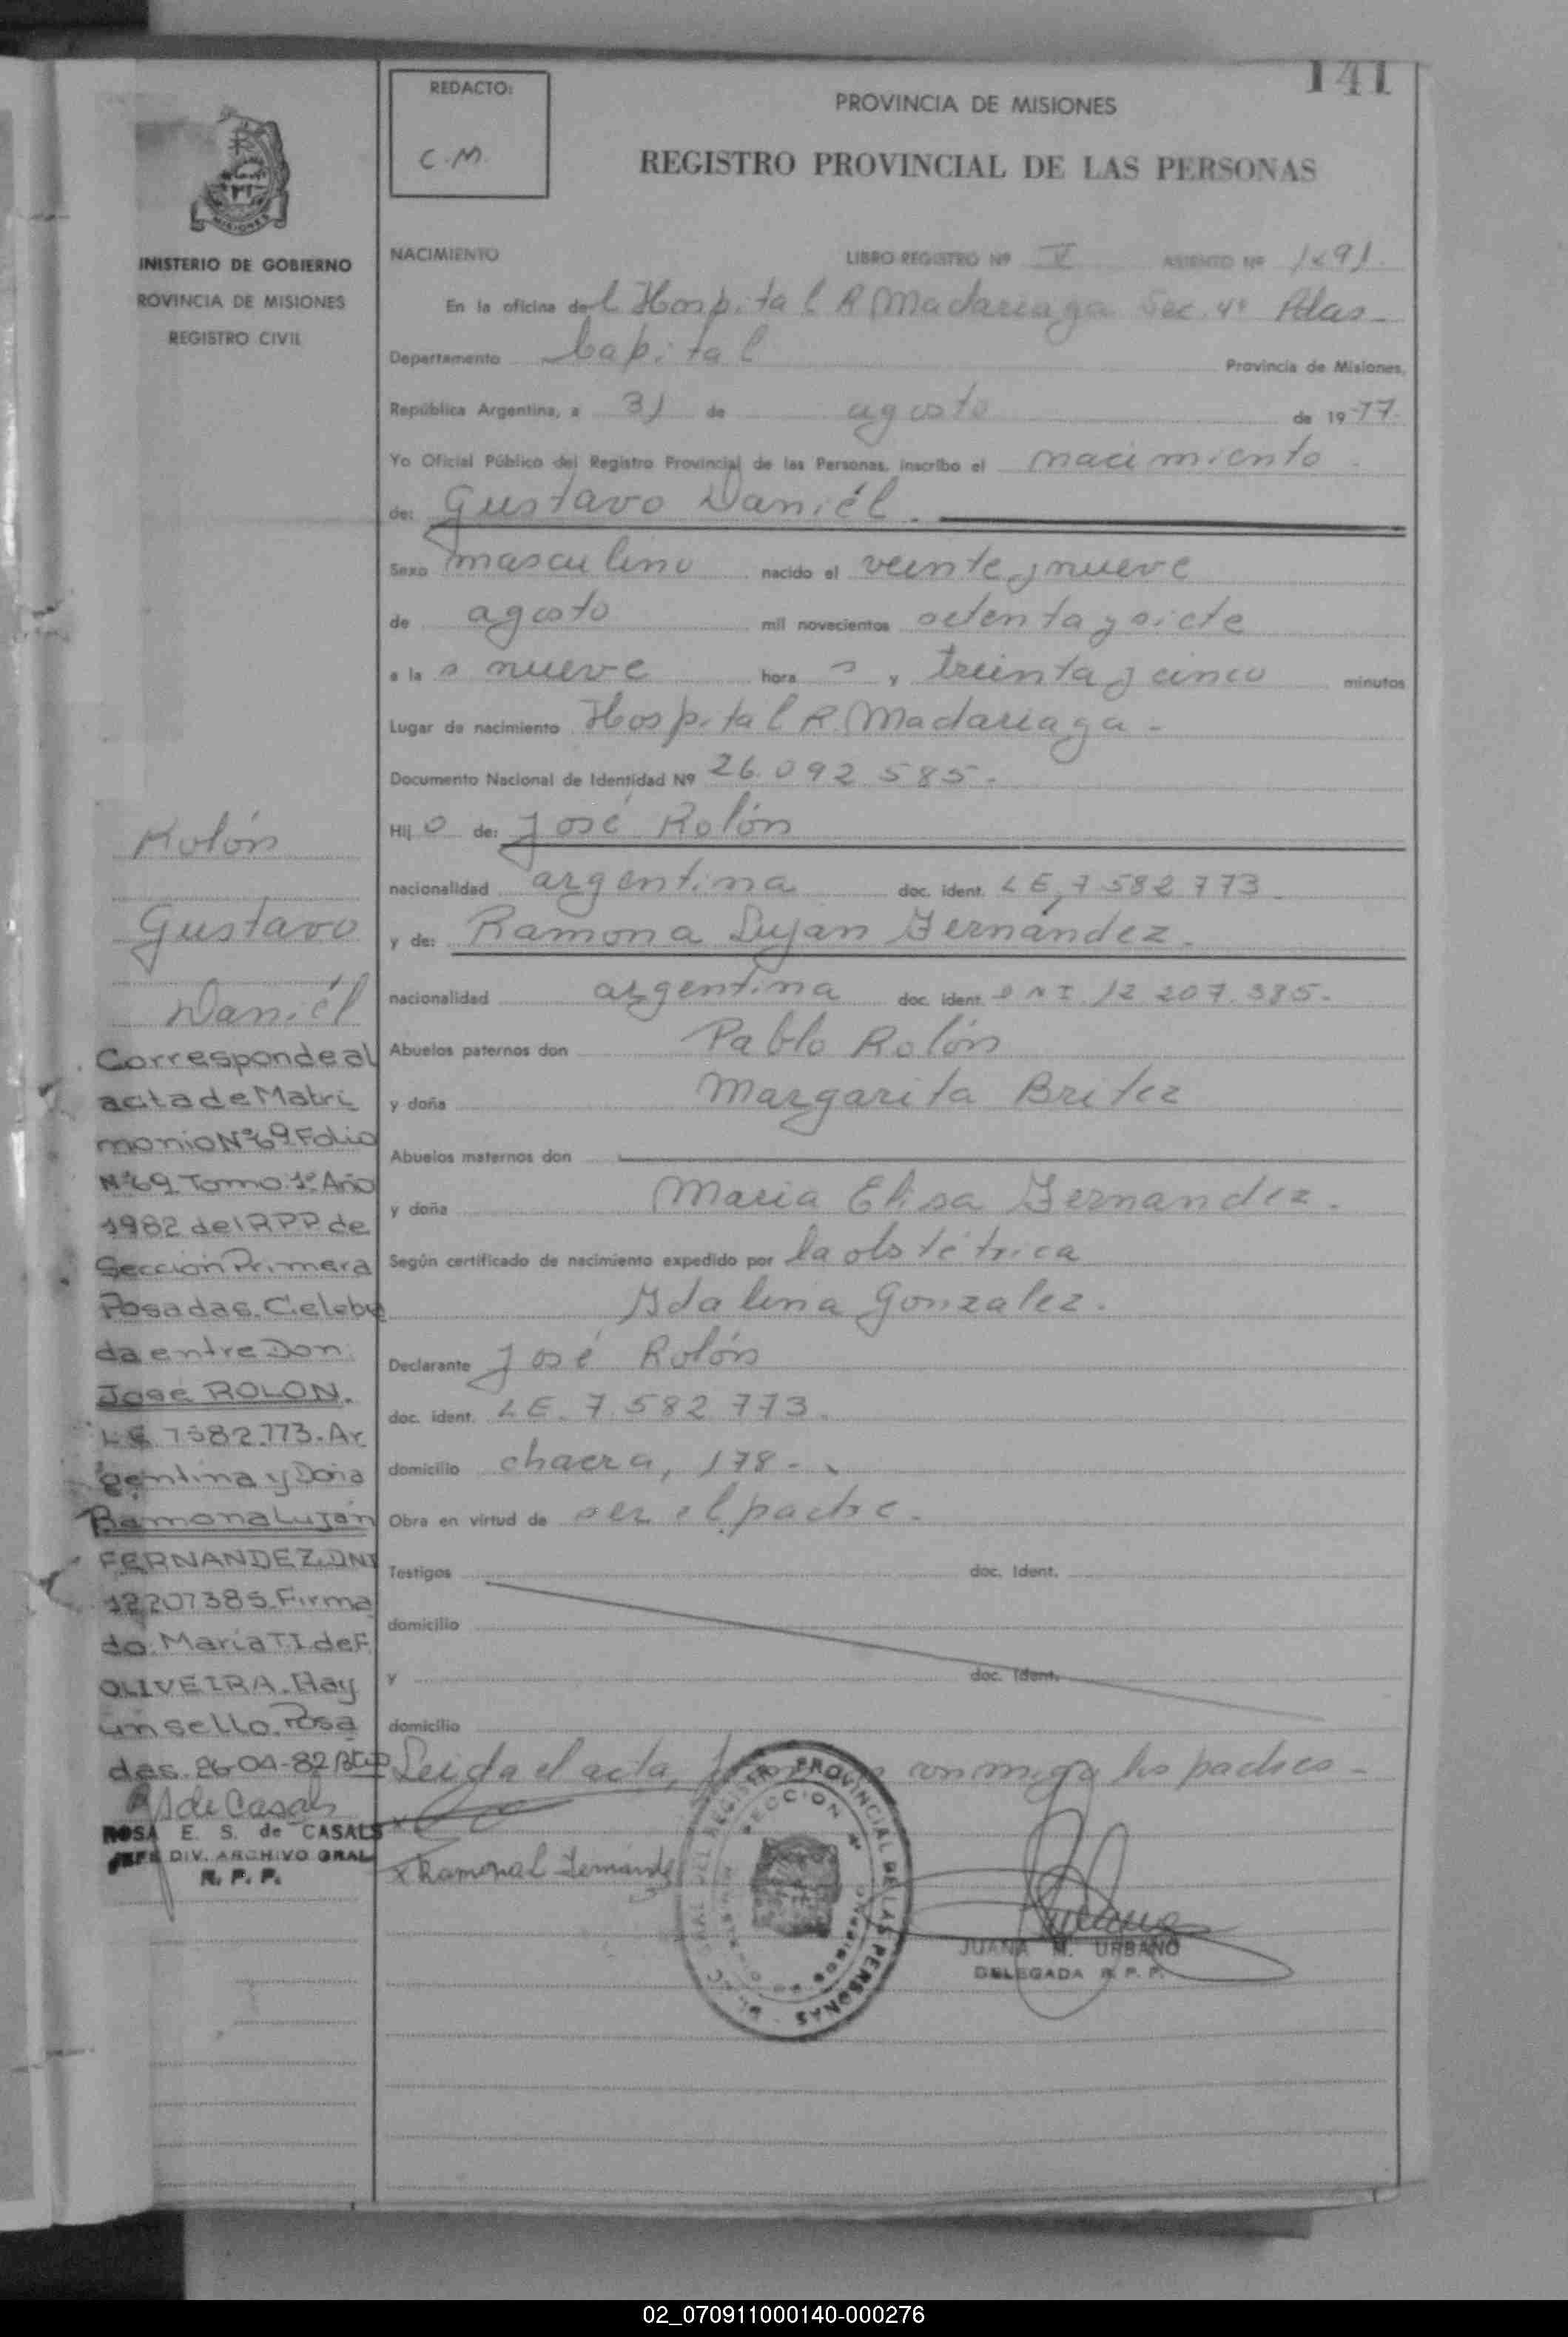 141
REDACTO:
C.M.
PROVINCIA DE MISIONES
REGISTRO PROVINCIAL DE LAS PERSONAS
MISIONES
INISTERIO DE GOBIERNO
ROVINCIA DE MISIONES
REGISTRO CIVIL
NACIMIENTO LIBRO REGISTRO Nº V ASIENTO Nº
En la oficina del Hospital R. Madariaga Sec. 4ª Pdas-
Departamento Capital Provincia de Misiones,
República Argentina, a 31 de agosto de 1977.
Yo Oficial Público del Registro Provincial de las Personas, inscribo el nacimiento
de: Gustavo Daniél.
Sexo masculino nacido el veinte y nueve
de agosto mil novecientos setenta y siete
a las nueve horas y treinta y cinco minutos
Lugar de nacimiento Hospital R. Madariaga-
Documento Nacional de Identidad Nº 26.092.585.
Hijo de: José Rolón
nacionalidad argentina doc. ident. LE, 7.582.773
y de: Ramona Lujan Fernández.
nacionalidad argentina doc. ident. DNI 12.207.385-
Abuelos paternos don Pablo Rolón
y doña Margarita Britez
Abuelos maternos don
y doña Maria Elisa Fernandez.
Según certificado de nacimiento expedido por la obstétrica
Idalina Gonzalez.
Declarante José Rolón
doc. ident. LE. 7.582.773.
domicilio chacra, 178-
Obra en virtud de ser el padre.
Testigos doc. Ident.
domicilio
y doc. Ident.
domicilio
Leida el acta, conmigo los padres-
x Ramona L Fernández
REGISTRO PROVINCIAL DE LAS PERSONAS
SECCION 4ª
JUANA M. URBANO
DELEGADA R. P. P.
Rolón
Gustavo
Daniél
Corresponde al
acta de Matri
monio Nº69 Folio
Nº69 Tomo 1º Año
1982 del RPP de
Sección Primera
Posadas. Celebra
da entre Don:
José ROLON.
LE 7582.773-Ar
gentina y Doña
Ramona Luján
FERNANDEZ. DNI
12207385. Firma
do: Maria T.I. de F.
OLIVEIRA. Hay
un sello. Posa
das. 26-04-82
RS de Casals
ROSA E. S. de CASALS
JEFE DIV. ARCHIVO GRAL
R. P. P.
02_070911000140-000276